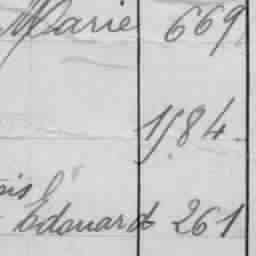 Marie 669
1584
Edouard 261